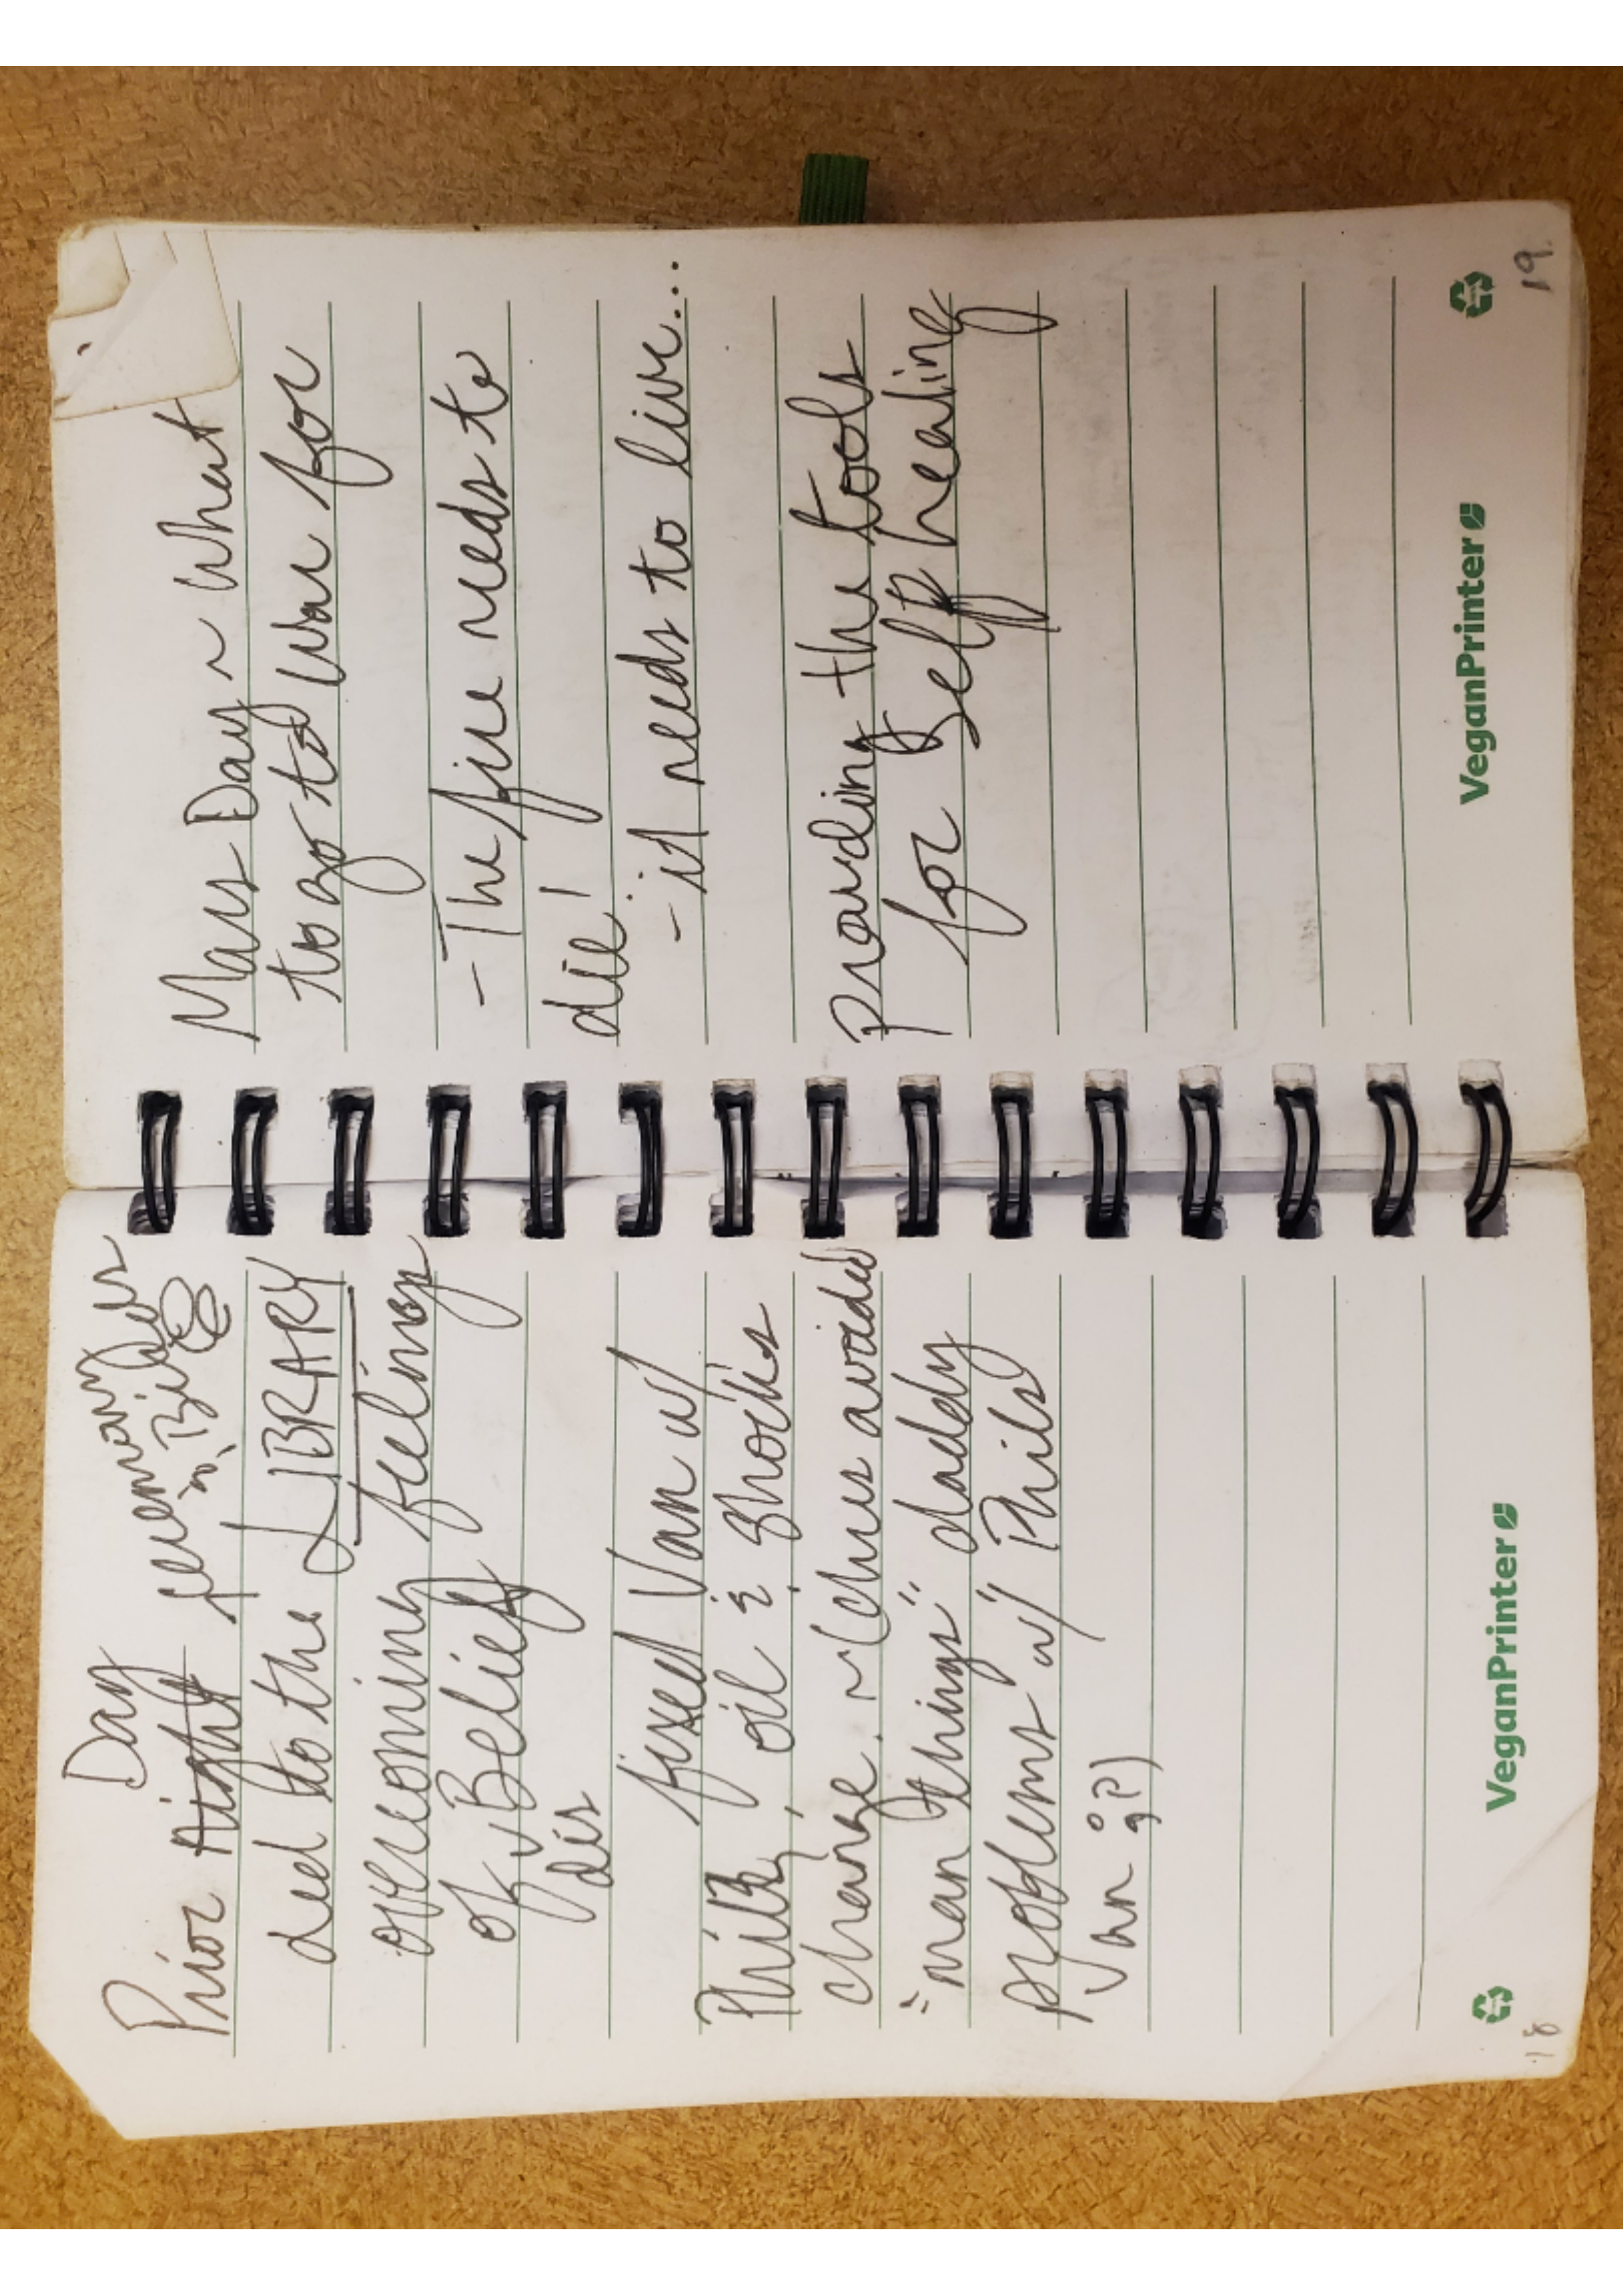 Day
Prior Night remembers
"Bilbo"
Led to the LIBRARY
overcoming feelings
of Belief
dis
fixed Van w/
Philz, oil & shocks
change. ~ (chris avoided
"man things" daddy
problems w/ Phils
Van :?)
VeganPrinter
18
Mars Day ~ What
to go to War for
- The fire needs to
die!
- it needs to live...
Providing the tools
for Self healing
VeganPrinter
19